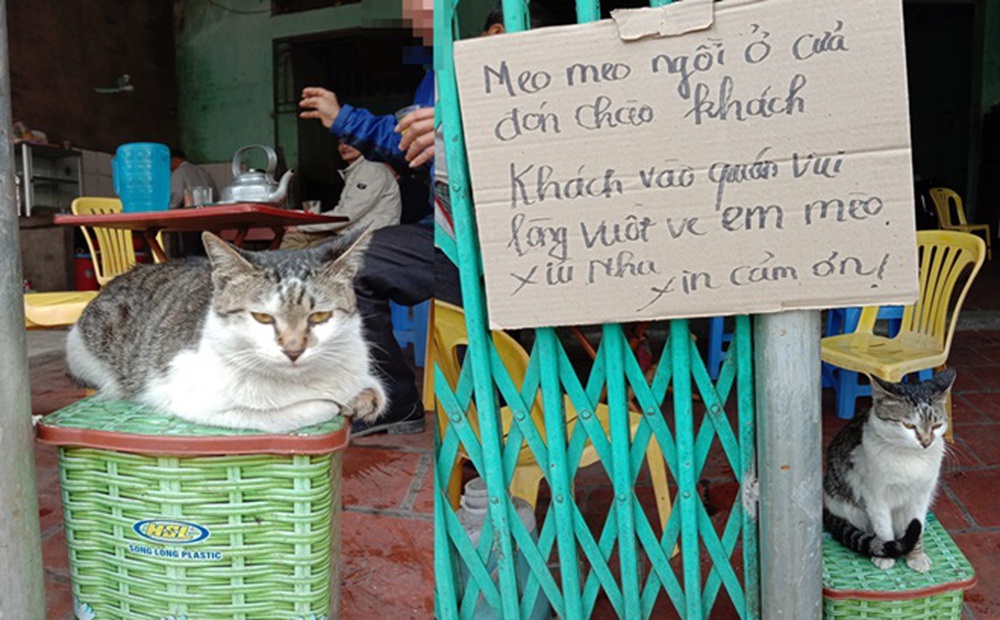 HSL
SONG LONG PLASTIC
Meo meo ngồi ở cửa
đón chào khách
Khách vào quán vui
lòng vuốt ve em mèo.
xíu nha xin cảm ơn!